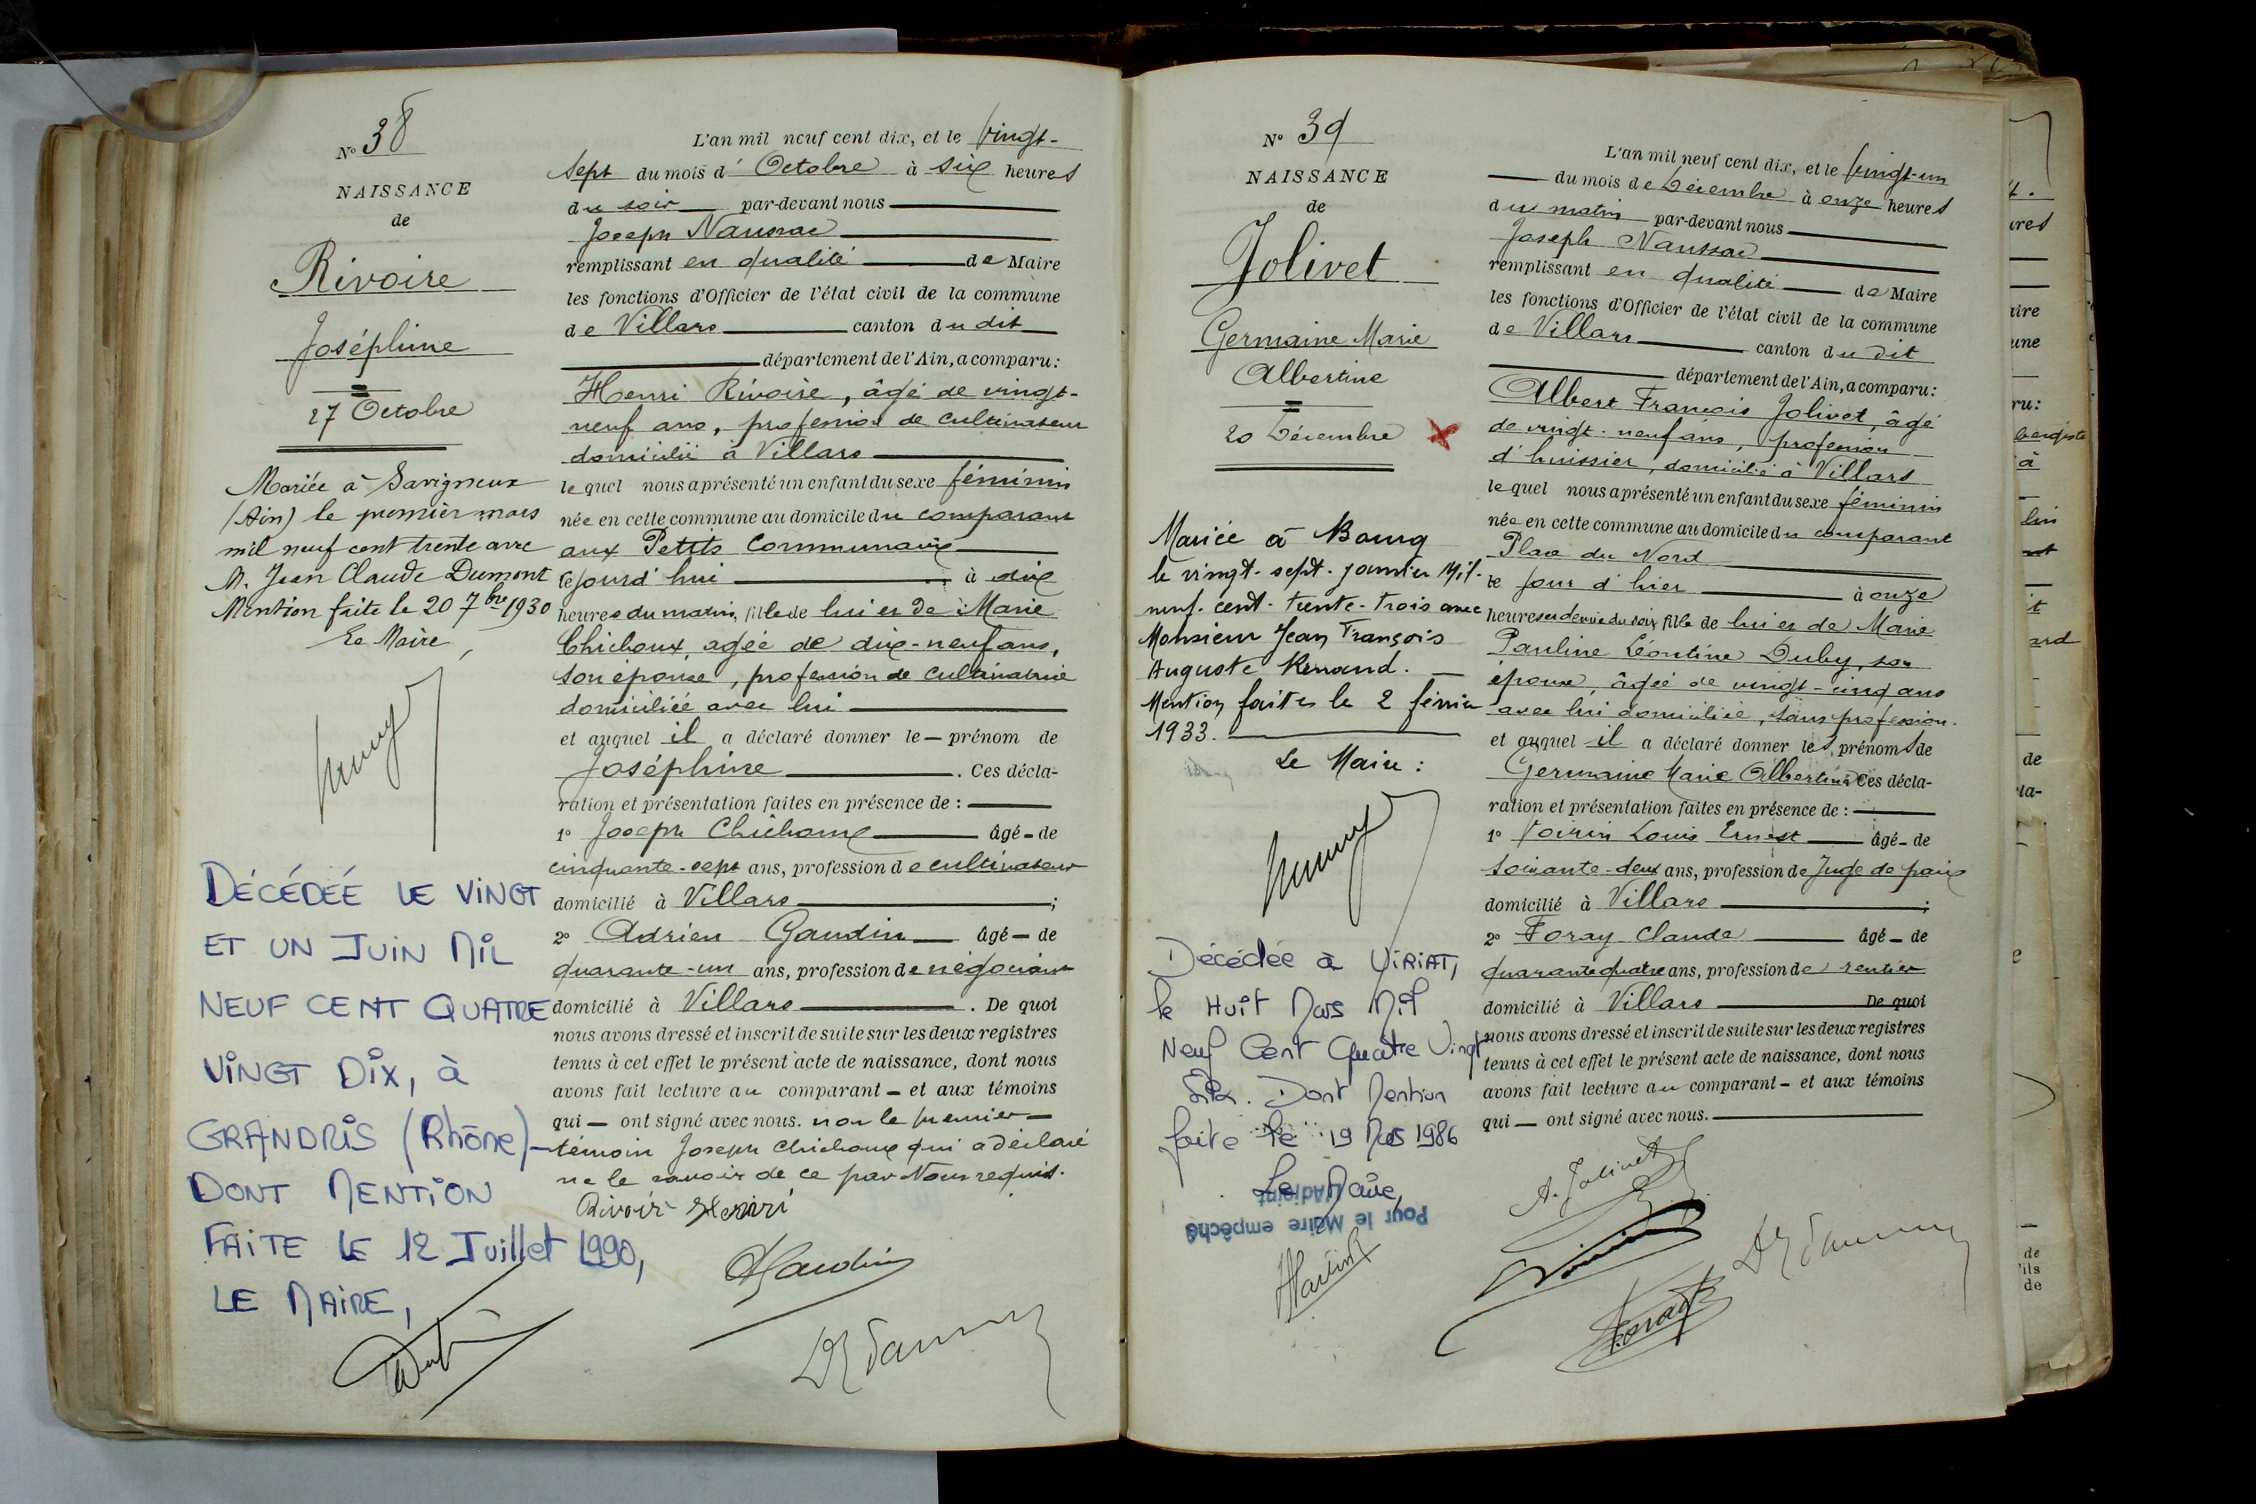 N° 38
NAISSANCE
de
Rivoire
Joséphine
27 Octobre
Mariée à Savigneux
(Ain) le premier mars
mil neuf cent trente avec
M. Jean Claude Dumont
Mention faite le 20 7bre 1930
Le Maire,
DÉCÉDÉE LE VINGT
ET UN JUIN MIL
NEUF CENT QUATRE
VINGT DIX, à
GRANDRIS (Rhône)-
DONT MENTION
FAITE LE 12 Juillet 1990,
LE MAIRE,
L'an mil neuf cent dix, et le vingt-
sept du mois d' Octobre à six heures
du soir par-devant nous
Joseph Naussac
remplissant en qualité de Maire
les fonctions d'Officier de l'état civil de la commune
de Villars canton du dit
département de l'Ain, a comparu:
Henri Rivoire, âgé de vingt-
neuf ans, profession de cultivateur
domicilié à Villars
lequel nous a présenté un enfant du sexe féminin
née en cette commune au domicile du comparant
aux Petits Communaux
cejourd'hui à dix
heures du matin, fille de lui et de Marie
Chichoux, agée de dix-neuf ans,
son épouse, profession de cultivatrice
domiciliée avec lui
et auquel il a déclaré donner le — prénom de
Joséphine . Ces décla-
ration et présentation faites en présence de :
1° Joseph Chichoux âgé - de
cinquante-sept ans, profession de cultivateur
domicilié à Villars ;
2° Adrien Gaudin âgé - de
quarante-un ans, profession de négociant
domicilié à Villars . De quoi
nous avons dressé et inscrit de suite sur les deux registres
tenus à cet effet le présent acte de naissance, dont nous
avons fait lecture au comparant - et aux témoins
qui — ont signé avec nous. non le premier
témoin Joseph Chichoux qui a déclaré
ne le savoir de ce par Nous requis.
Rivoire Henri
AGaudin
N° 39
NAISSANCE
de
Jolivet
Germaine Marie
Albertine
20 Décembre
Mariée à Bourg
le vingt-sept-janvier Mil-
neuf-cent-trente-trois avec
Monsieur Jean François
Auguste
Mention faites le 2 février
1933.
Le Maire :
Décédée à VIRIAT,
le Huit Mars Mil
Neuf Cent Quatre Vingt
Six. Dont Mention
faite le 19 Mars 1986
Le Maire,
Pour le Maire empêché
l'Adjoint
L'an mil neuf cent dix, et le vingt-un
du mois de Décembre à onze heures
du matin par-devant nous
Joseph Naussac
remplissant en qualité de Maire
les fonctions d'Officier de l'état civil de la commune
de Villars canton du dit
département de l'Ain, a comparu:
Albert François Jolivet, âgé
de vingt-neuf ans, profession
d'huissier, domicilié à Villars
lequel nous a présenté un enfant du sexe féminin
née en cette commune au domicile du comparant
Place du Nord
le jour d'hier à onze
heures et demie du soir fille de lui et de Marie
Pauline Léontine Duby, son
épouse, âgée de vingt-cinq ans
avec lui domiciliée, sans profession.
et auquel il a déclaré donner les prénoms de
Germaine Marie Albertine Ces décla-
ration et présentation faites en présence de :
1° Louis Ernest âgé - de
soixante-deux ans, profession de Juge de paix
domicilié à Villars ;
2° Foray Claude âgé - de
quarante quatre ans, profession de rentier
domicilié à Villars De quoi
nous avons dressé et inscrit de suite sur les deux registres
tenus à cet effet le présent acte de naissance, dont nous
avons fait lecture au comparant - et aux témoins
qui — ont signé avec nous.
A. Jolivet